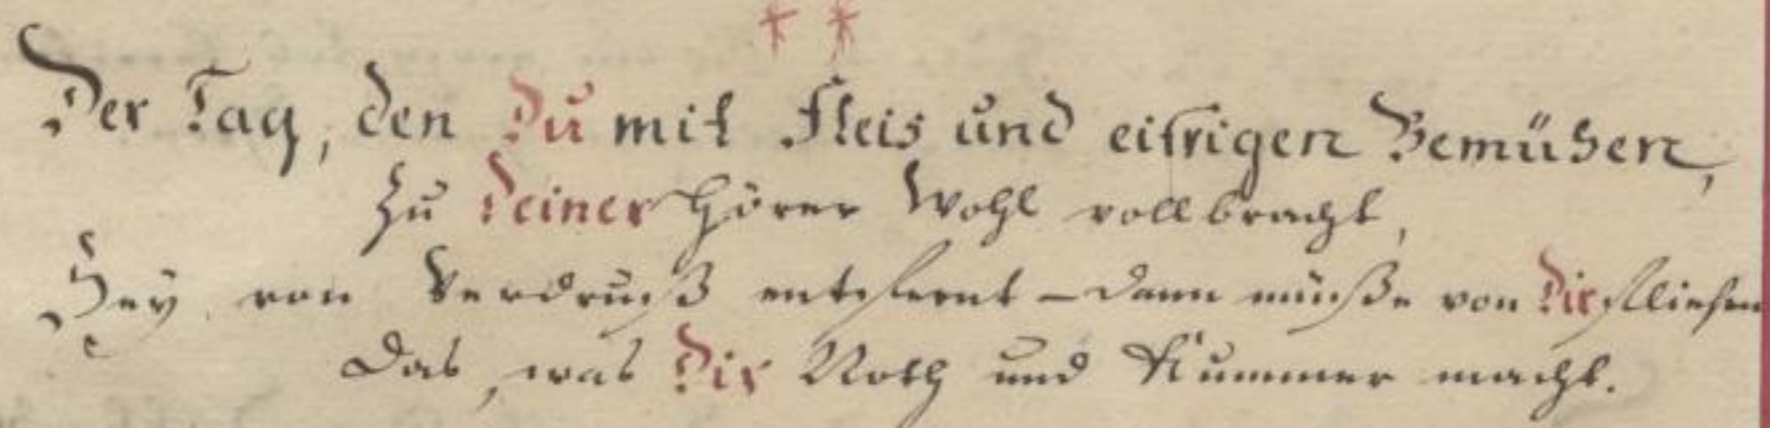 Der Tag, den Du mit Fleis und eifrigen Bemühen,
Zu Deiner Hörer Wohl vollbracht,
Sey von Verdruß entfernt – dann müße von Dir fliehen
Das, was Dir Noth und Kummer macht.